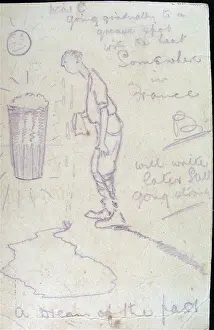 going gradually to a
grease spot
with the heat
Somewhere
in
France
B
will write
later Still
going strong
A Dream of the past